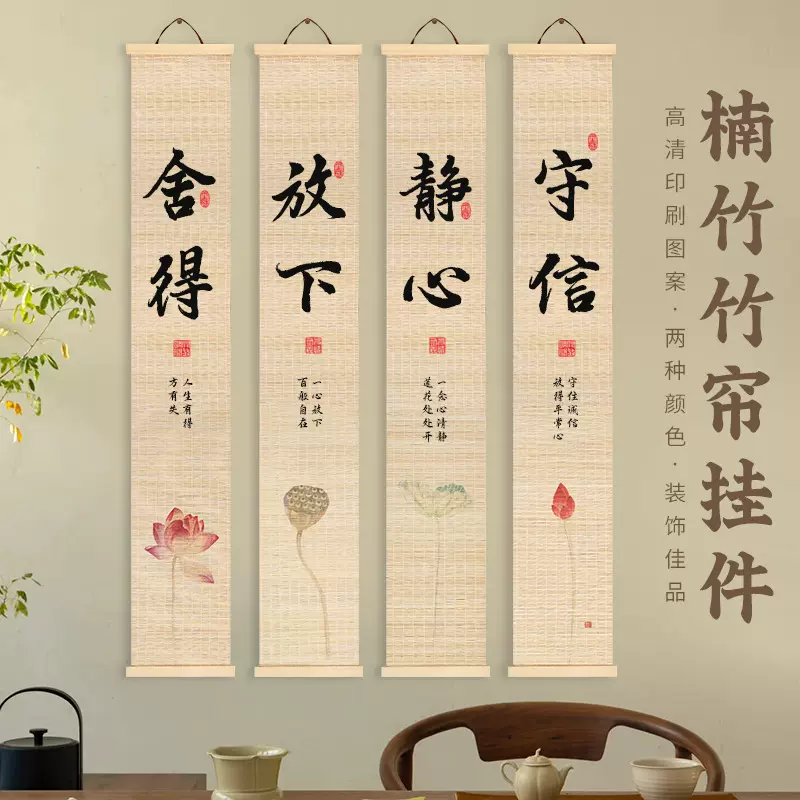 楠竹竹帘挂件
高清印刷图案·两种颜色·装饰佳品
守信
守住诚信
放得平常心
静心
一念心清静
莲花处处开
放下
一心放下
百般自在
舍得
人生有得
方有失